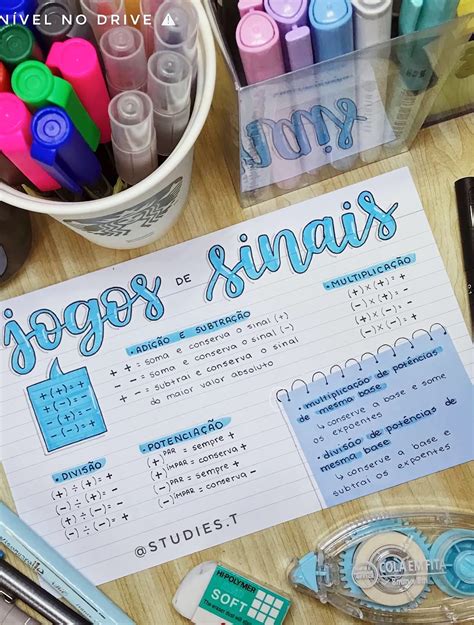 NÍVEL NO DRIVE ⚠
sinai
jogos DE sinais
• ADIÇÃO E SUBTRAÇÃO
+ + = soma e conserva o sinal (+)
- - = soma e conserva o sinal (-)
+ - = subtrai e conserva o sinal
do maior valor absoluto
• MULTIPLICAÇÃO
(+) × (+) = +
(-) × (-) = +
(+) × (-) = -
(-) × (+) = -
+ (+) = +
+ (-) = -
- (+) = -
- (-) = +
• multiplicação de potências
de mesma base
↳ conserve a base e some
os expoentes
• divisão de potências de
mesma base
↳ conserve a base e
subtrai os expoentes
• DIVISÃO
(+) ÷ (+) = +
(-) ÷ (-) = +
(+) ÷ (-) = -
(-) ÷ (+) = -
• POTENCIAÇÃO
(+) PAR = sempre +
(+) ÍMPAR = conserva +
(-) PAR = sempre +
(-) ÍMPAR = conserva -
@STUDIES.T
HI-POLYMER
SOFT
COLA EM FITA